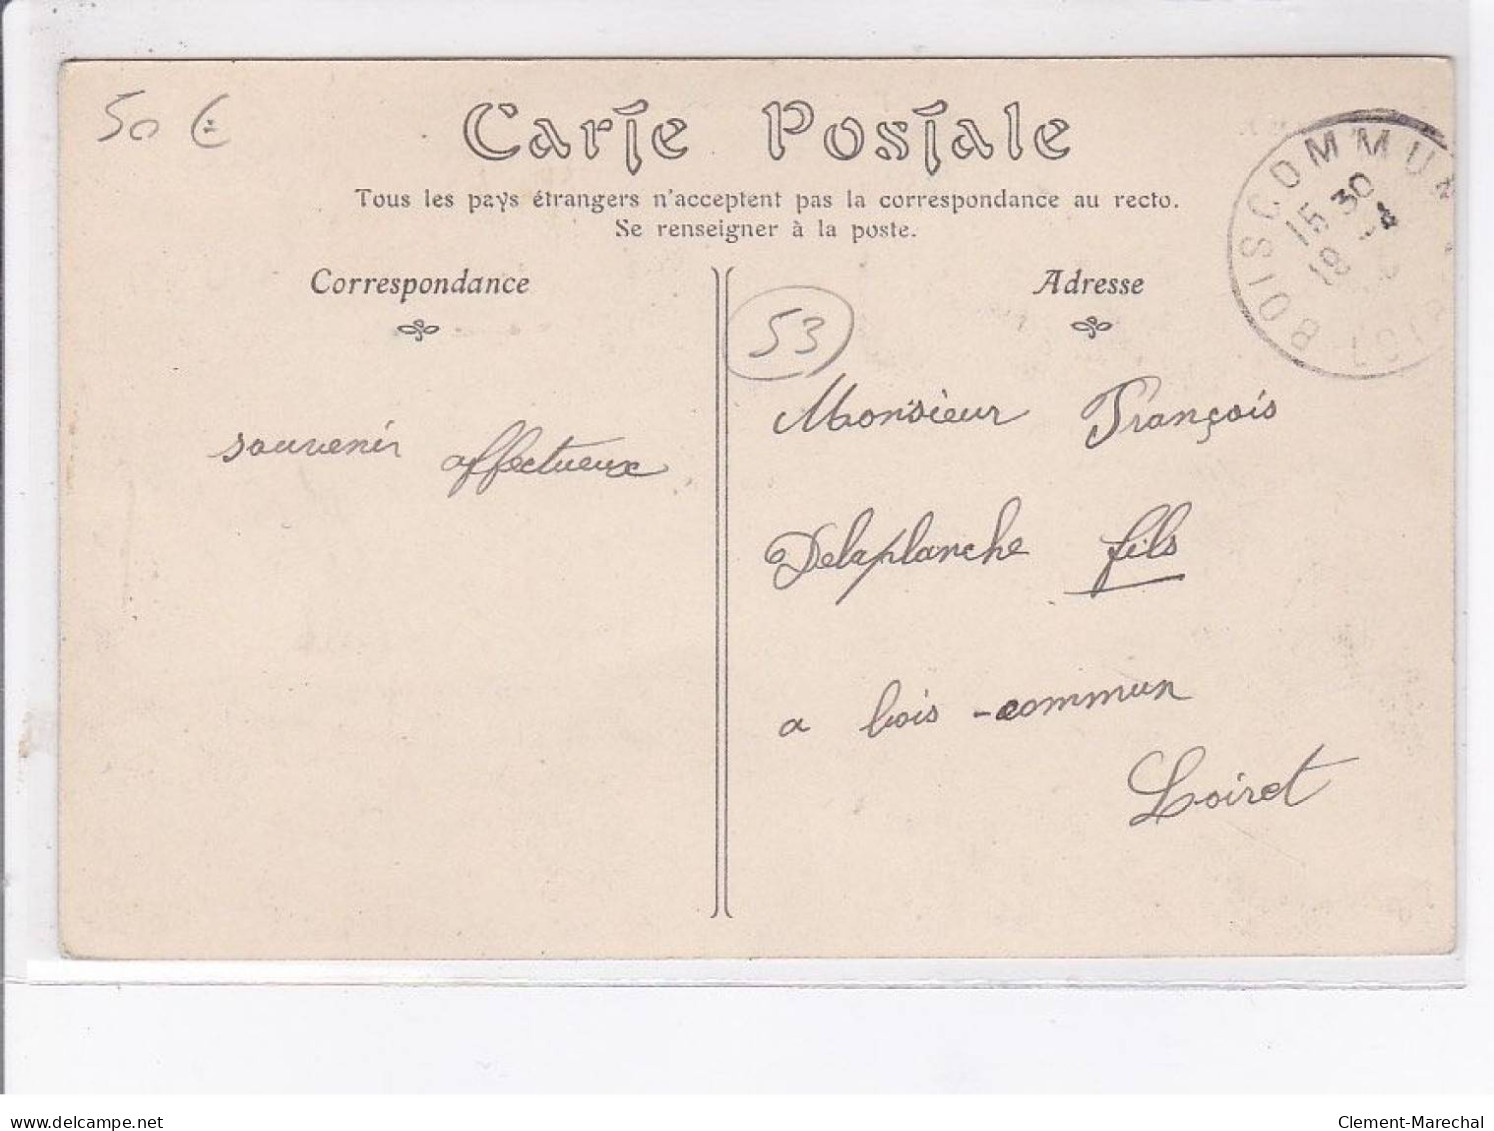 50 €
Carte Postale
Tous les pays étrangers n'acceptent pas la correspondance au recto.
Se renseigner à la poste.
Correspondance
Adresse
BOISCOMMUN
15 30
18
53
souvenir affectueux
Monsieur François
Delaplanche fils
a bois-commun
Loiret
delcampe.net
Clement-Marechal